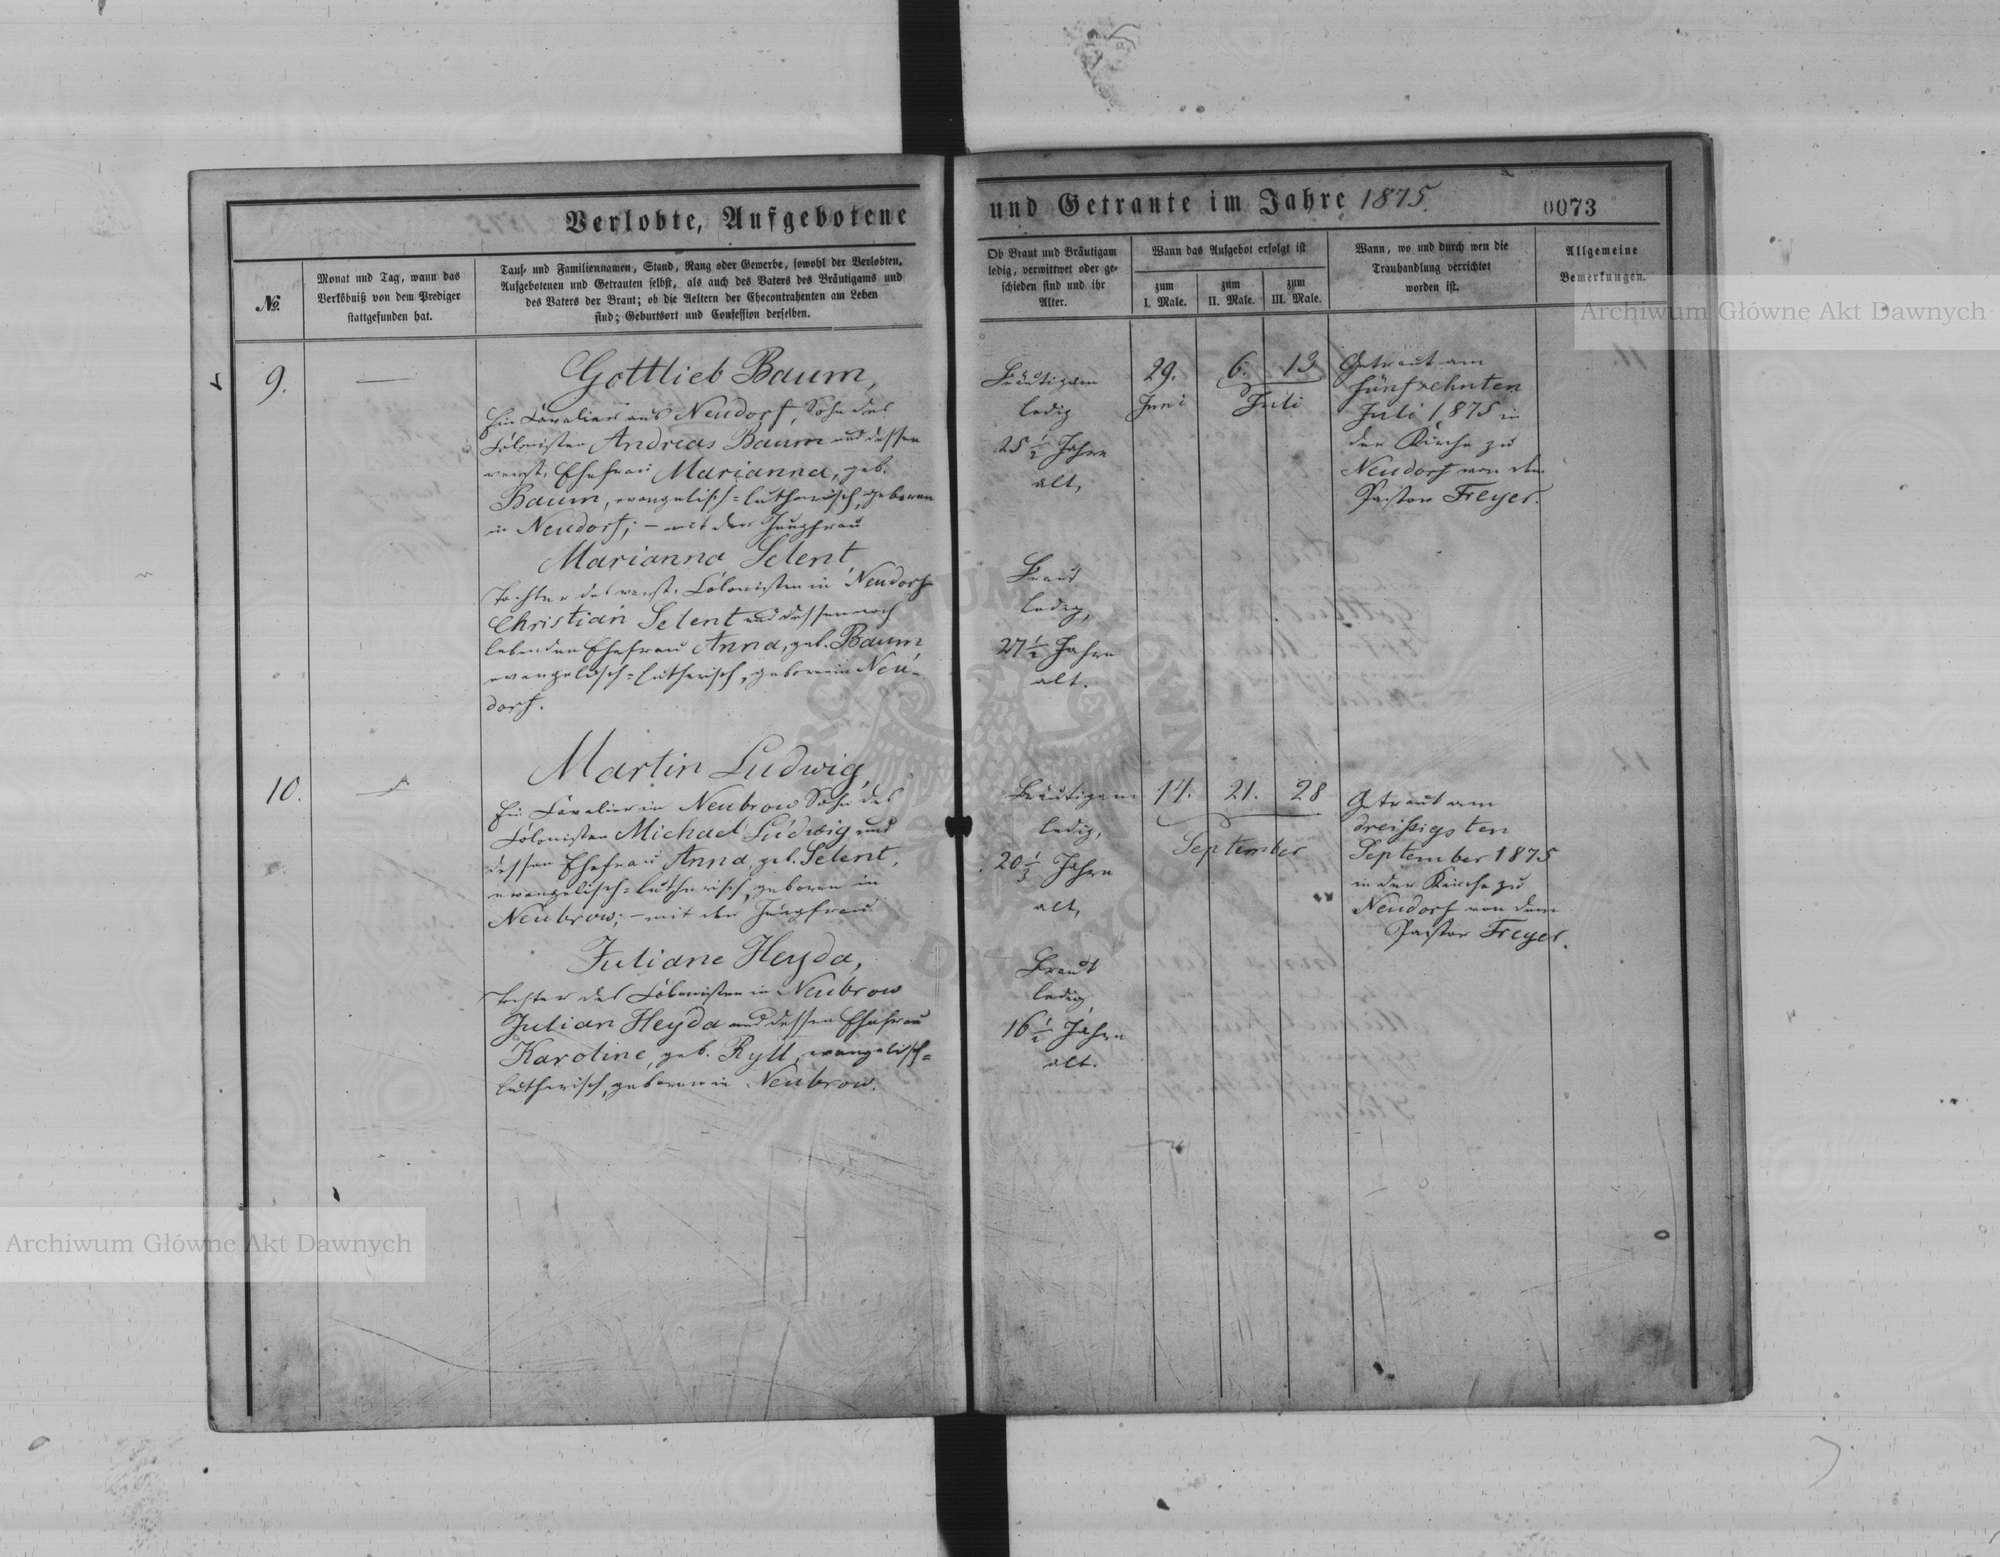 Verlobte, Aufgebotene
und Getraute im Jahre 1875.
0073
№.
Monat und Tag, wann das
Verlöbniß von dem Prediger
stattgefunden hat.
Tauf- und Familiennamen, Stand, Rang oder Gewerbe, sowohl der Verlobten,
Aufgebotenen und Getrauten selbst, als auch des Vaters des Bräutigams und
des Vaters der Braut; ob die Aeltern der Ehecontrahenten am Leben
sind; Geburtsort und Confession derselben.
Ob Braut und Bräutigam
ledig, verwittwet oder ge-
schieden sind und ihr
Alter.
Wann das Aufgebot erfolgt ist
zum
I. Male.
zum
II. Male.
zum
III. Male.
Wann, wo und durch wen die
Trauhandlung verrichtet
worden ist.
Allgemeine
Bemerkungen.
9.
Gottlieb Baum,
Ein Cavalier aus Neudorf, Sohn des
Colonisten Andreas Baum und dessen
verst. Ehefrau Marianna, geb.
Baum, evangelisch-lutherisch, geboren
in Neudorf; – mit der Jungfrau
Marianna Selent,
Tochter des verst. Colonisten in Neudorf
Christian Selent und dessen noch
lebenden Ehefrau Anna, geb. Baum
evangelisch-lutherisch, geboren in Neu-
dorf.
Bräutigam
ledig
25 1/2 Jahre
alt,
Braut
ledig,
27 1/2 Jahre
alt.
29.
Juni
6. 13
Juli
Getraut am
fünfzehnten
Juli 1875 in
der Kirche zu
Neudorf von dem
Pastor Freyer.
10.
Martin Ludwig,
Ein Cavalier in Neubrow Sohn des
Colonisten Michael Ludwig und
dessen Ehefrau Anna, geb. Selent,
evangelisch-lutherisch, geboren in
Neubrow; – mit der Jungfrau
Juliane Heyda,
Tochter des Colonisten in Neubrow
Julian Heyda und dessen Ehefrau
Karoline, geb. Ryll, evangelisch-
lutherisch, geboren in Neubrow.
Bräutigam
ledig,
20 1/3 Jahre
alt,
Braut
ledig
16 1/2 Jahre
alt.
14. 21. 28
September
Getraut am
dreißigsten
September 1875
in der Kirche zu
Neudorf von dem
Pastor Freyer.
Archiwum Główne Akt Dawnych
Archiwum Główne Akt Dawnych